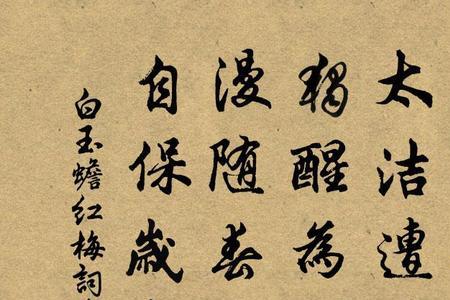 太洁遭
独醒为
漫随春
自保岁
白玉蟾红梅词